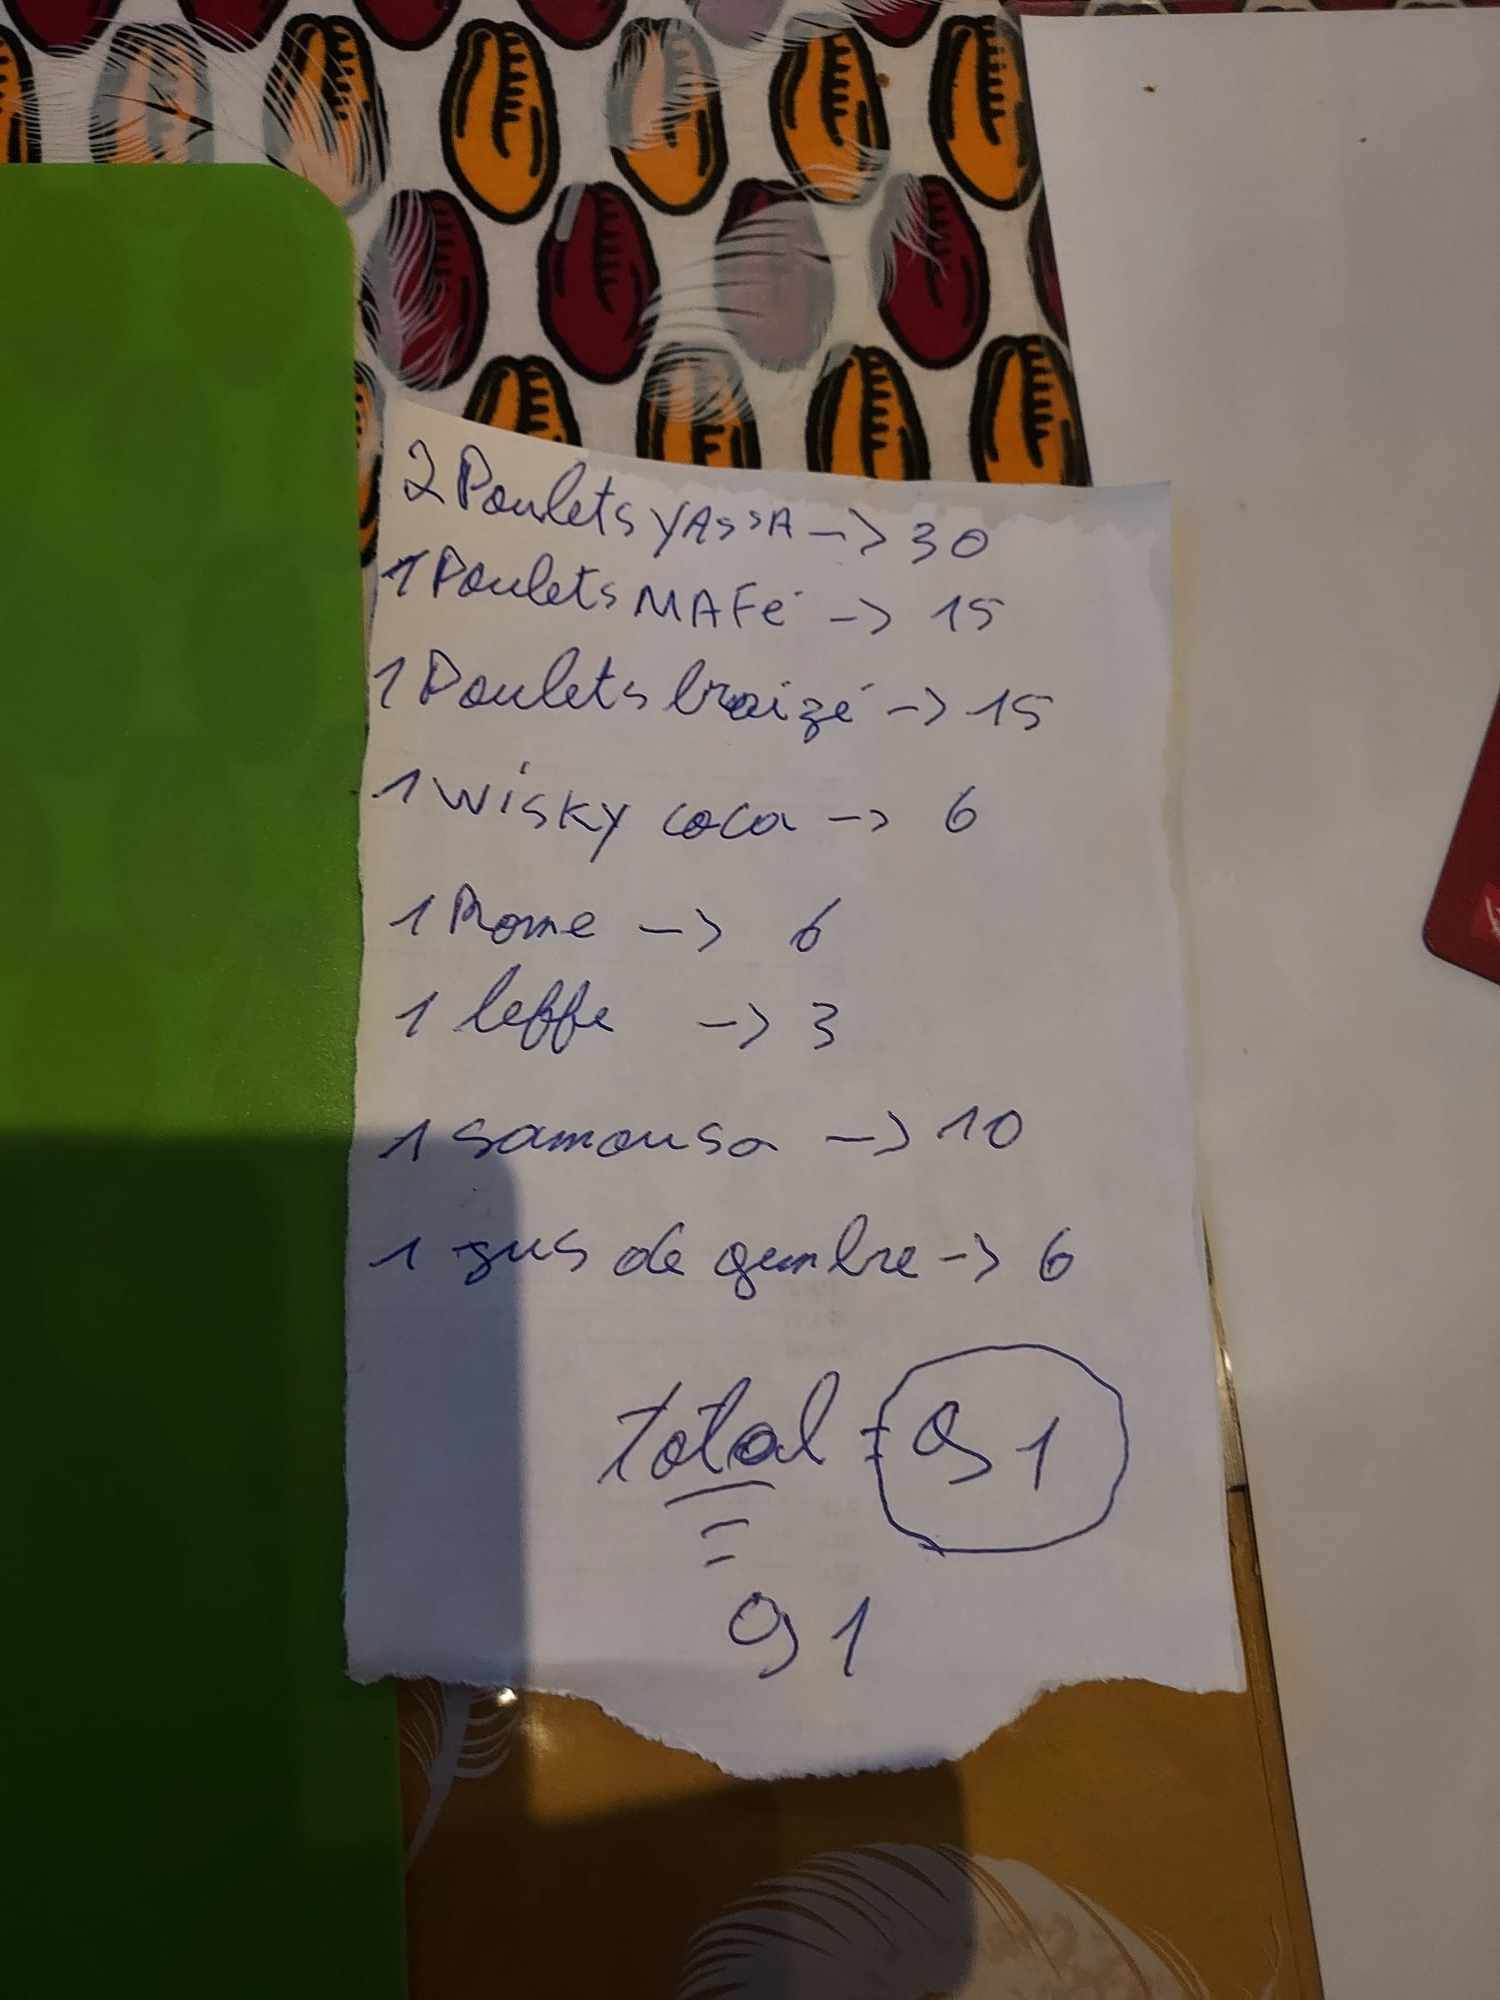 2 Poulets YAssA -> 30
1 Poulets MAFé -> 15
1 Poulets braizé -> 15
1 wisky coca -> 6
1 Rome -> 6
1 leffe -> 3
1 samousa -> 10
1 jus de gembre -> 6
total = 91
=
91